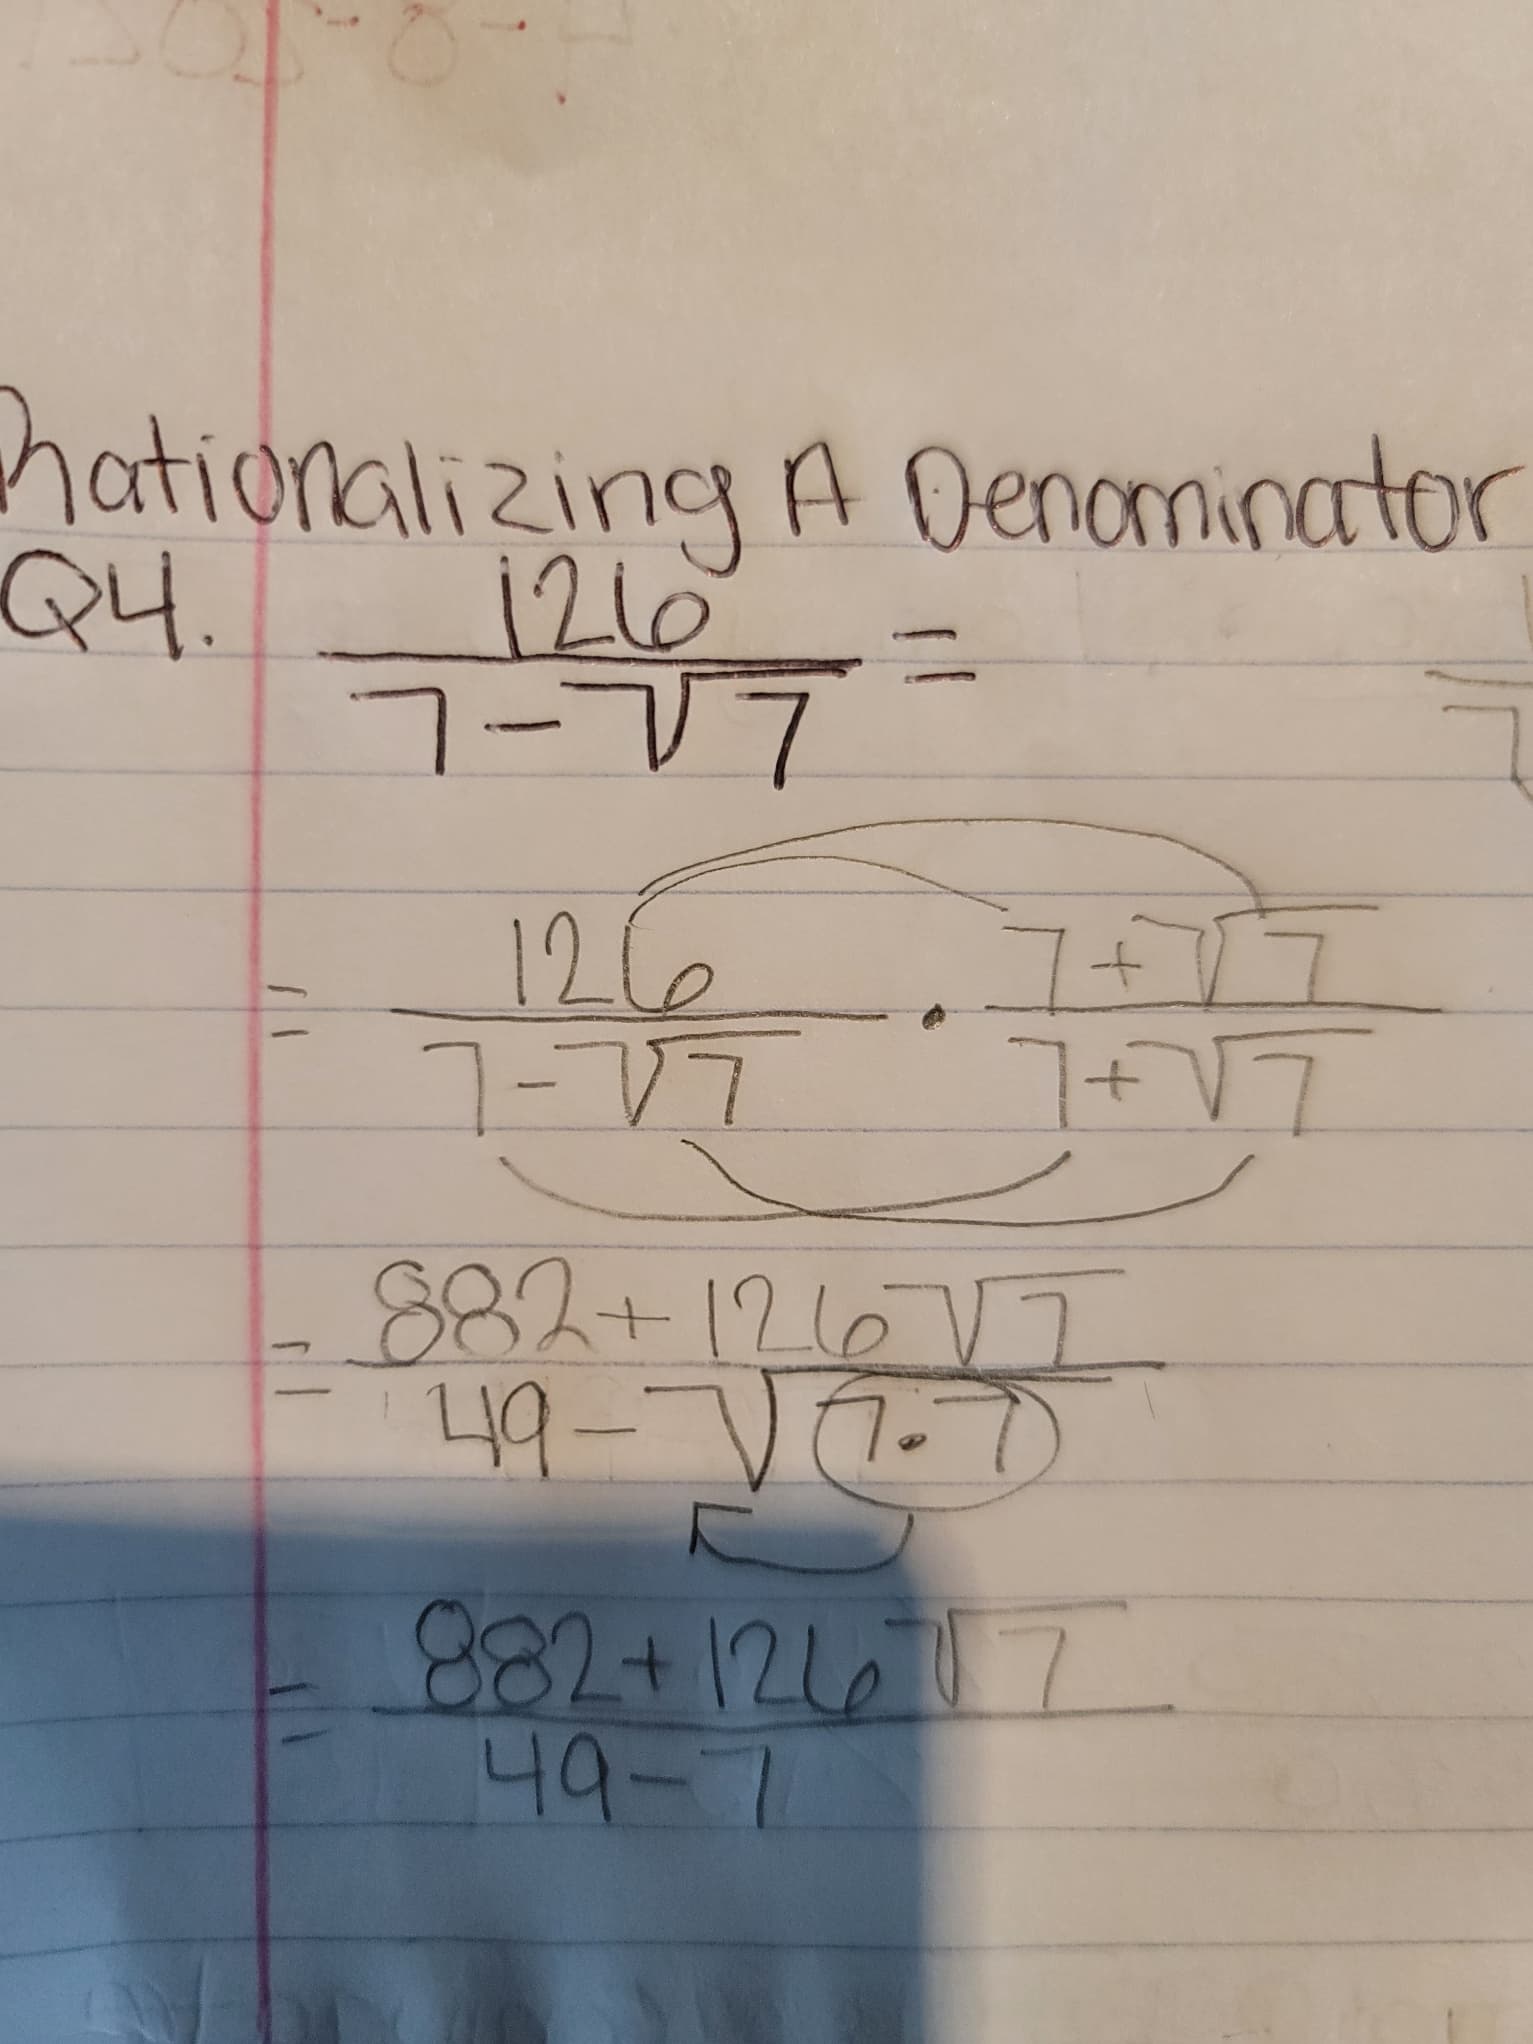 Rationalizing A Denominator
Q4. 126 / (7 - √7) =
= 126 / (7 - √7) • (7 + √7) / (7 + √7)
= (882 + 126√7) / (49 - √(7 • 7))
= (882 + 126√7) / (49 - 7)